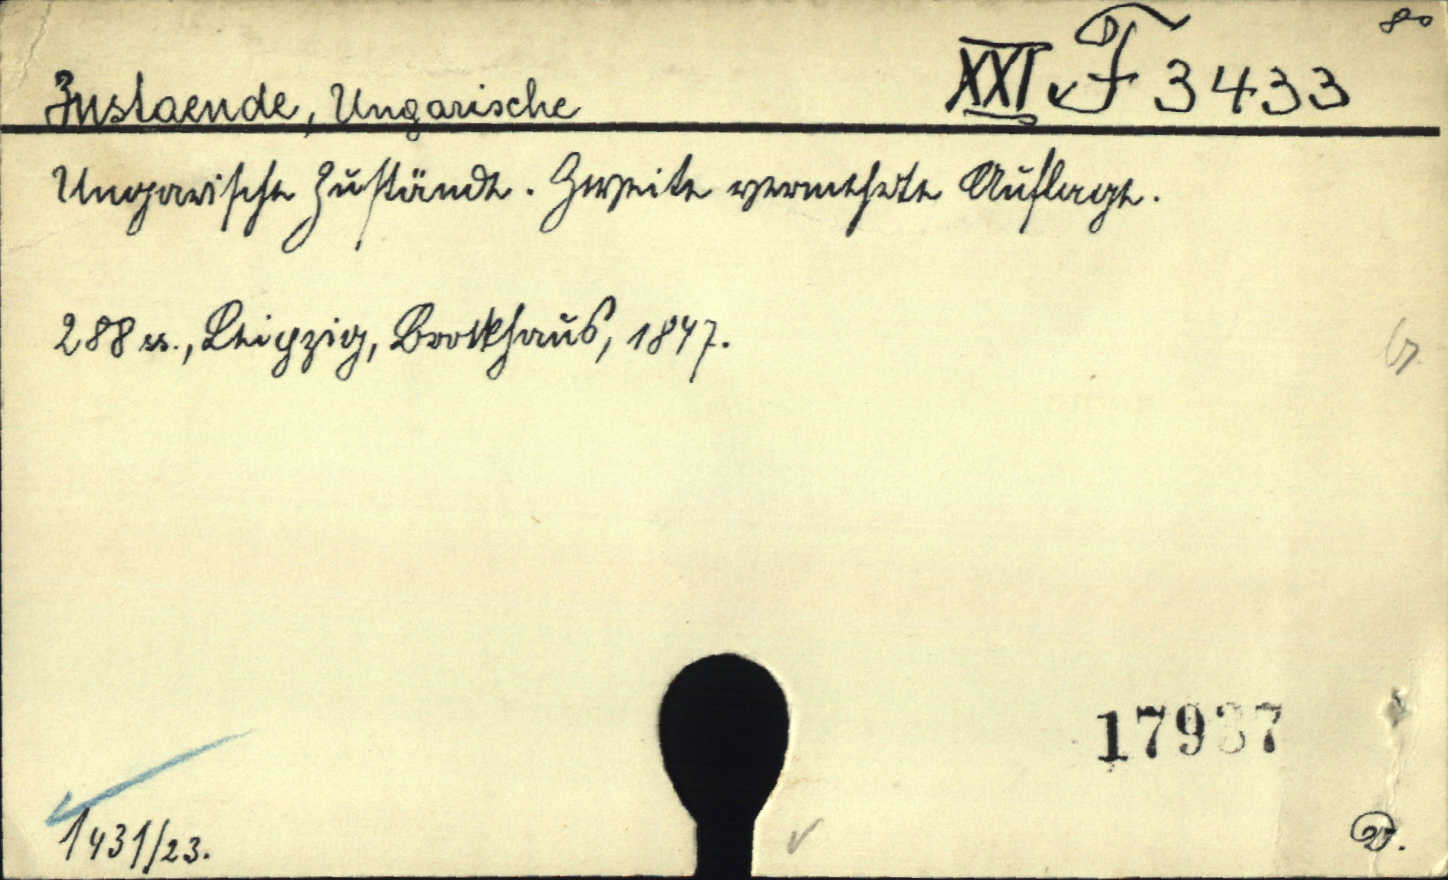 8°
XXI. F 3433
Zustaende, Ungarische
Ungarische Zustände. Zweite vermehrte Auflage.
288 ss., Leipzig, Brockhaus, 1847.
17937
1431/23.